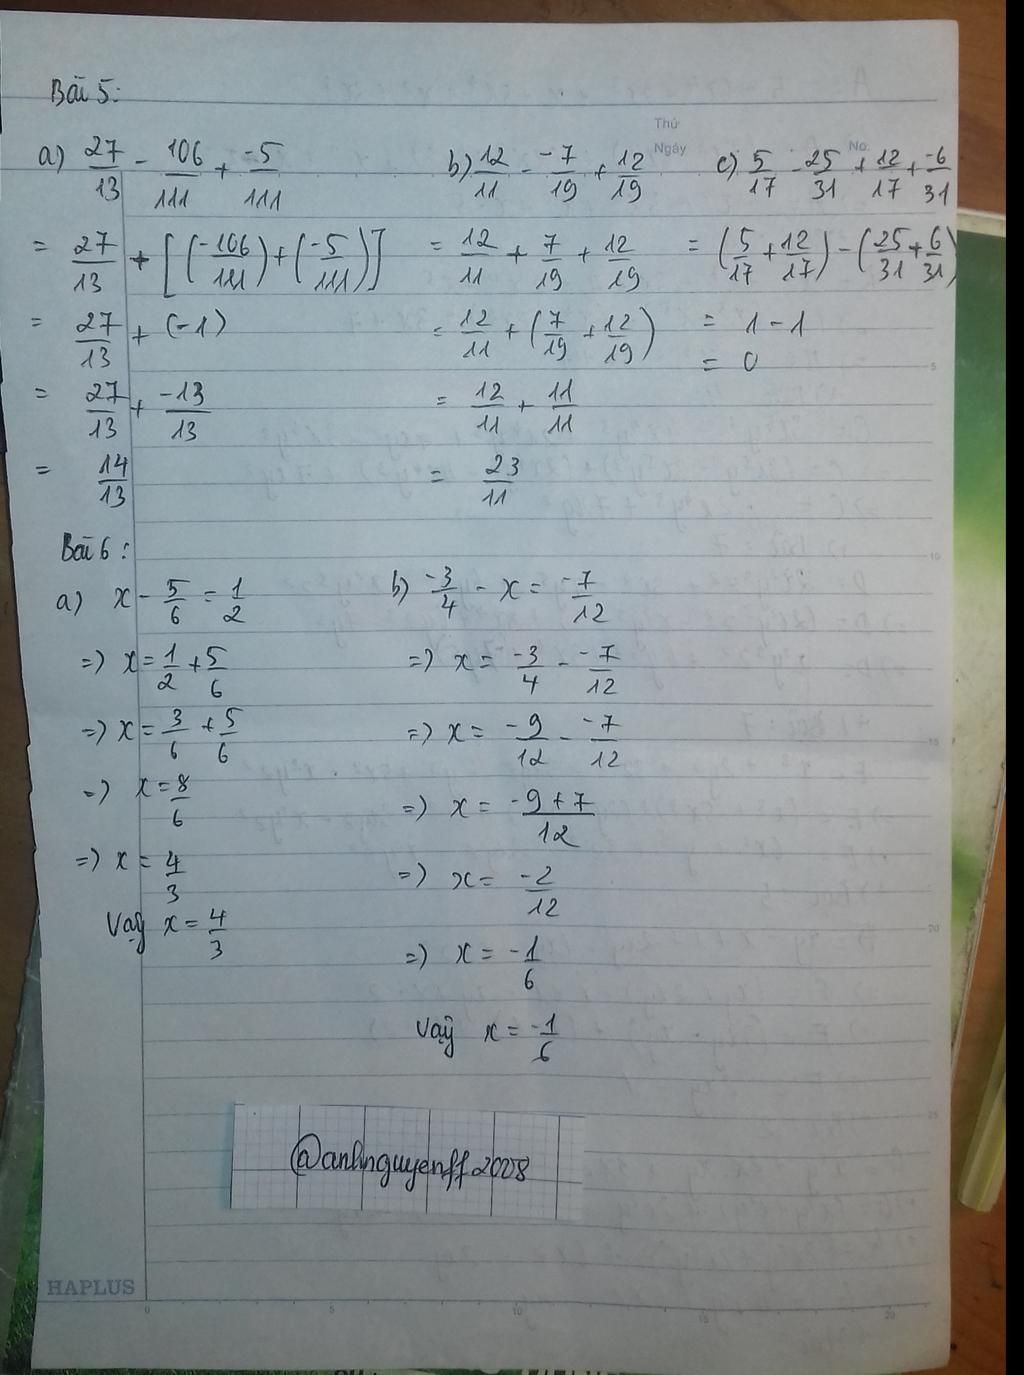 Bài 5:
Thứ
Ngày
No.
a) 27/13 - 106/111 + -5/111
= 27/13 + [(-106/111) + (-5/111)]
= 27/13 + (-1)
= 27/13 + -13/13
= 14/13
b) 12/11 - -7/19 + 12/19
= 12/11 + 7/19 + 12/19
= 12/11 + (7/19 + 12/19)
= 12/11 + 11/11
= 23/11
c) 5/17 - 25/31 + 12/17 + -6/31
= (5/17 + 12/17) - (25/31 + 6/31)
= 1 - 1
= 0
Bài 6:
a) x - 5/6 = 1/2
=) x = 1/2 + 5/6
=) x = 3/6 + 5/6
=) x = 8/6
=) x = 4/3
Vậy x = 4/3
b) -3/4 - x = -7/12
=) x = -3/4 - -7/12
=) x = -9/12 - -7/12
=) x = -9+7/12
=) x = -2/12
=) x = -1/6
Vậy x = -1/6
@anhnguyenff2008
HAPLUS
0 5 10 15 20
5
10
15
20
25